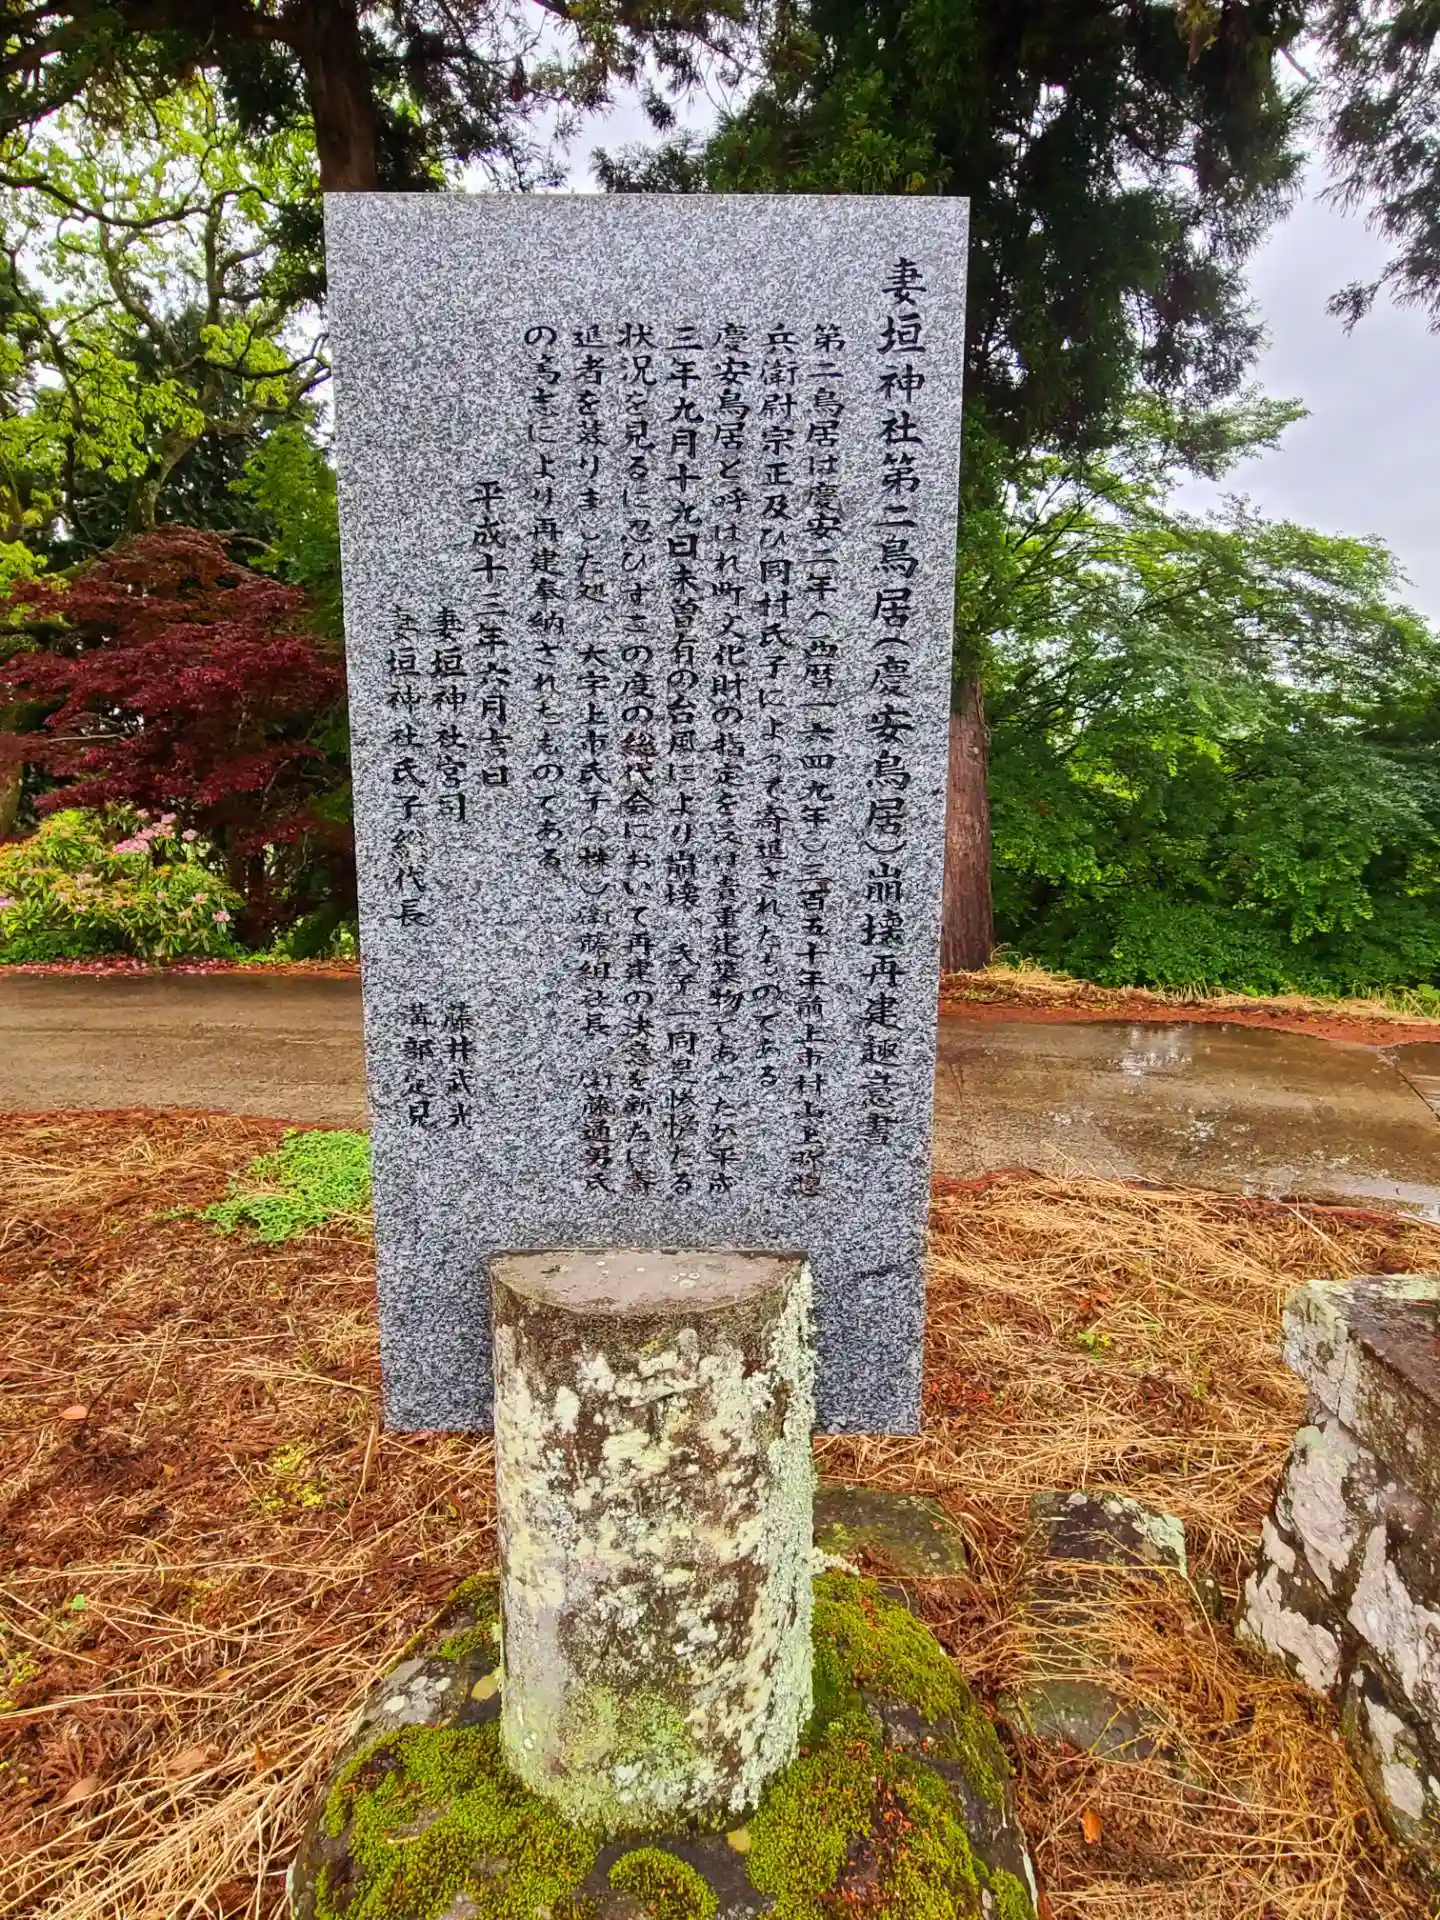 妻垣神社第二鳥居(慶安鳥居)崩壊再建趣意書
第二鳥居は慶安二年(西暦一六四九年)三百五十年前上市村 上 惣
兵衛尉宗正及び同村氏子によって寄進されたものである
慶安鳥居と呼ばれ町文化財の指定を受け貴重建築物であったが平成
三年九月十九日未曽有の台風により崩壊。氏子一同 たる
状況を見るに忍びずこの度の総代会において再建の決意を新たに寄
進者を募りました処、大字上市氏子(株)衛藤組社長 衛藤通男氏
の篤志により再建奉納されたものである
平成十二年六月吉日
妻垣神社宮司 藤井武光
妻垣神社氏子総代長 溝部定見